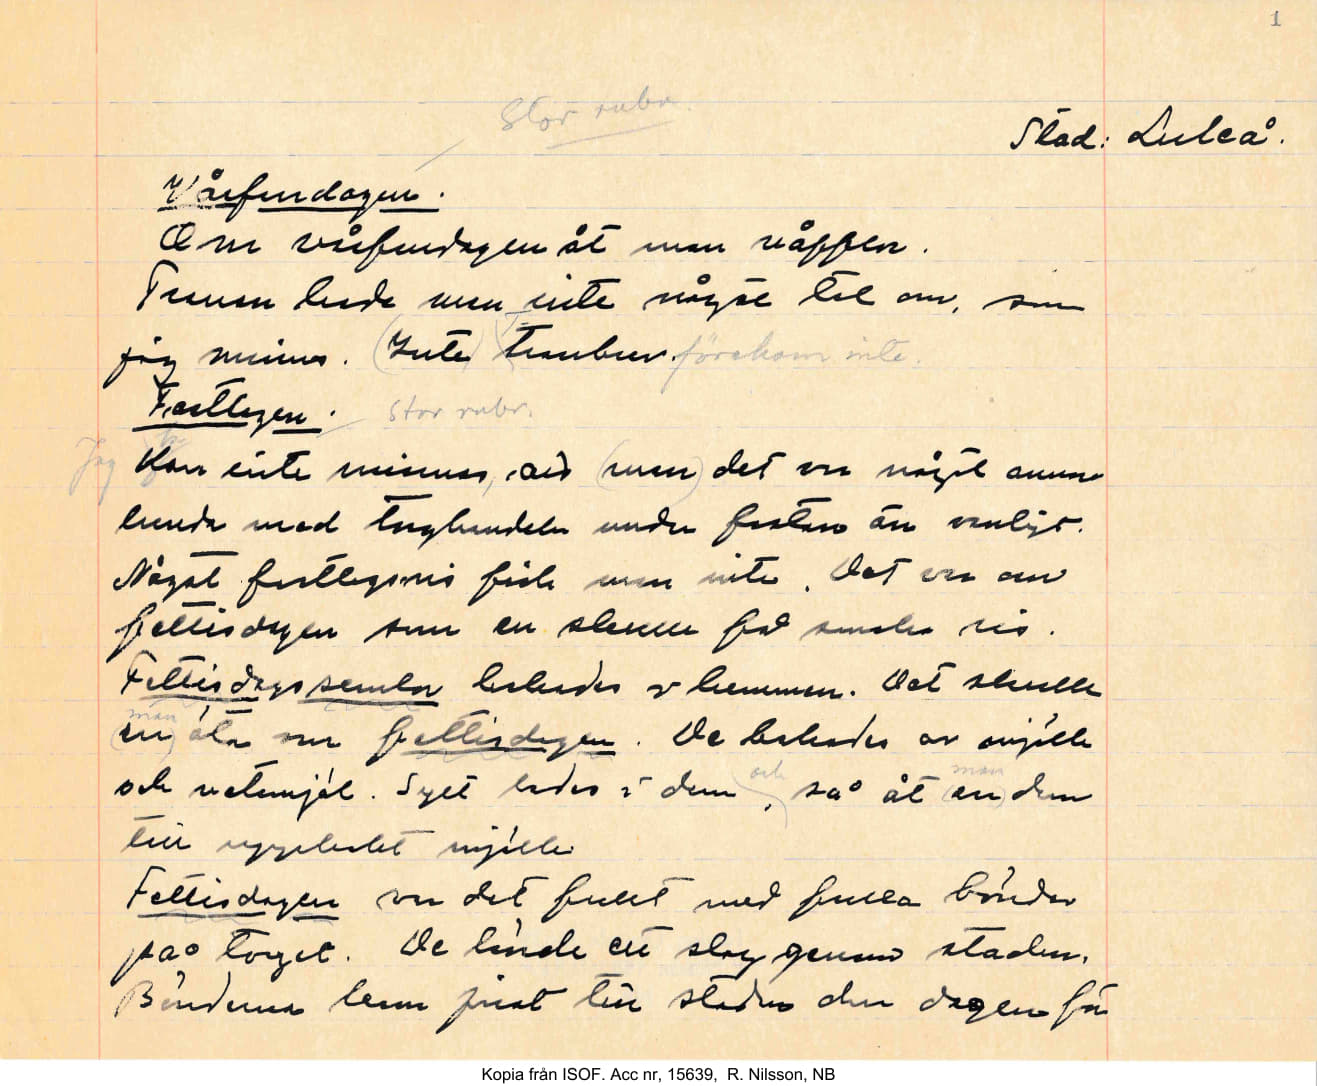 1
Stor rubr.
Stad: Luleå.
Vårfrudagen.
Om vårfrudagen åt man våfflor.
Tranan hade man inte något tal om, som
jag minns. (Inte) Tranbrev förekom inte.
Fastlagen. stor rubr.
Jag kan inte minnas, att (man) det var något annor
lunda med torghandeln under fastan än vanligt.
Något fastlagsris fick man inte. Det var om
fettisdagen som en skulle få smaka ris.
Fettisdagssemlor bakades i hemmen. Det skulle
man
(en) äta om fettisdagen. De bakades av mjölk
och vetemjöl. Sylt lades i dem, och så åt man (en) dem
till uppkokt mjölk.
Fettisdagen var det fullt med fulla bönder
på torget. De körde ett slag genom staden.
Bönderna kom just till staden den dagen för
Kopia från ISOF. Acc nr, 15639, R. Nilsson, NB